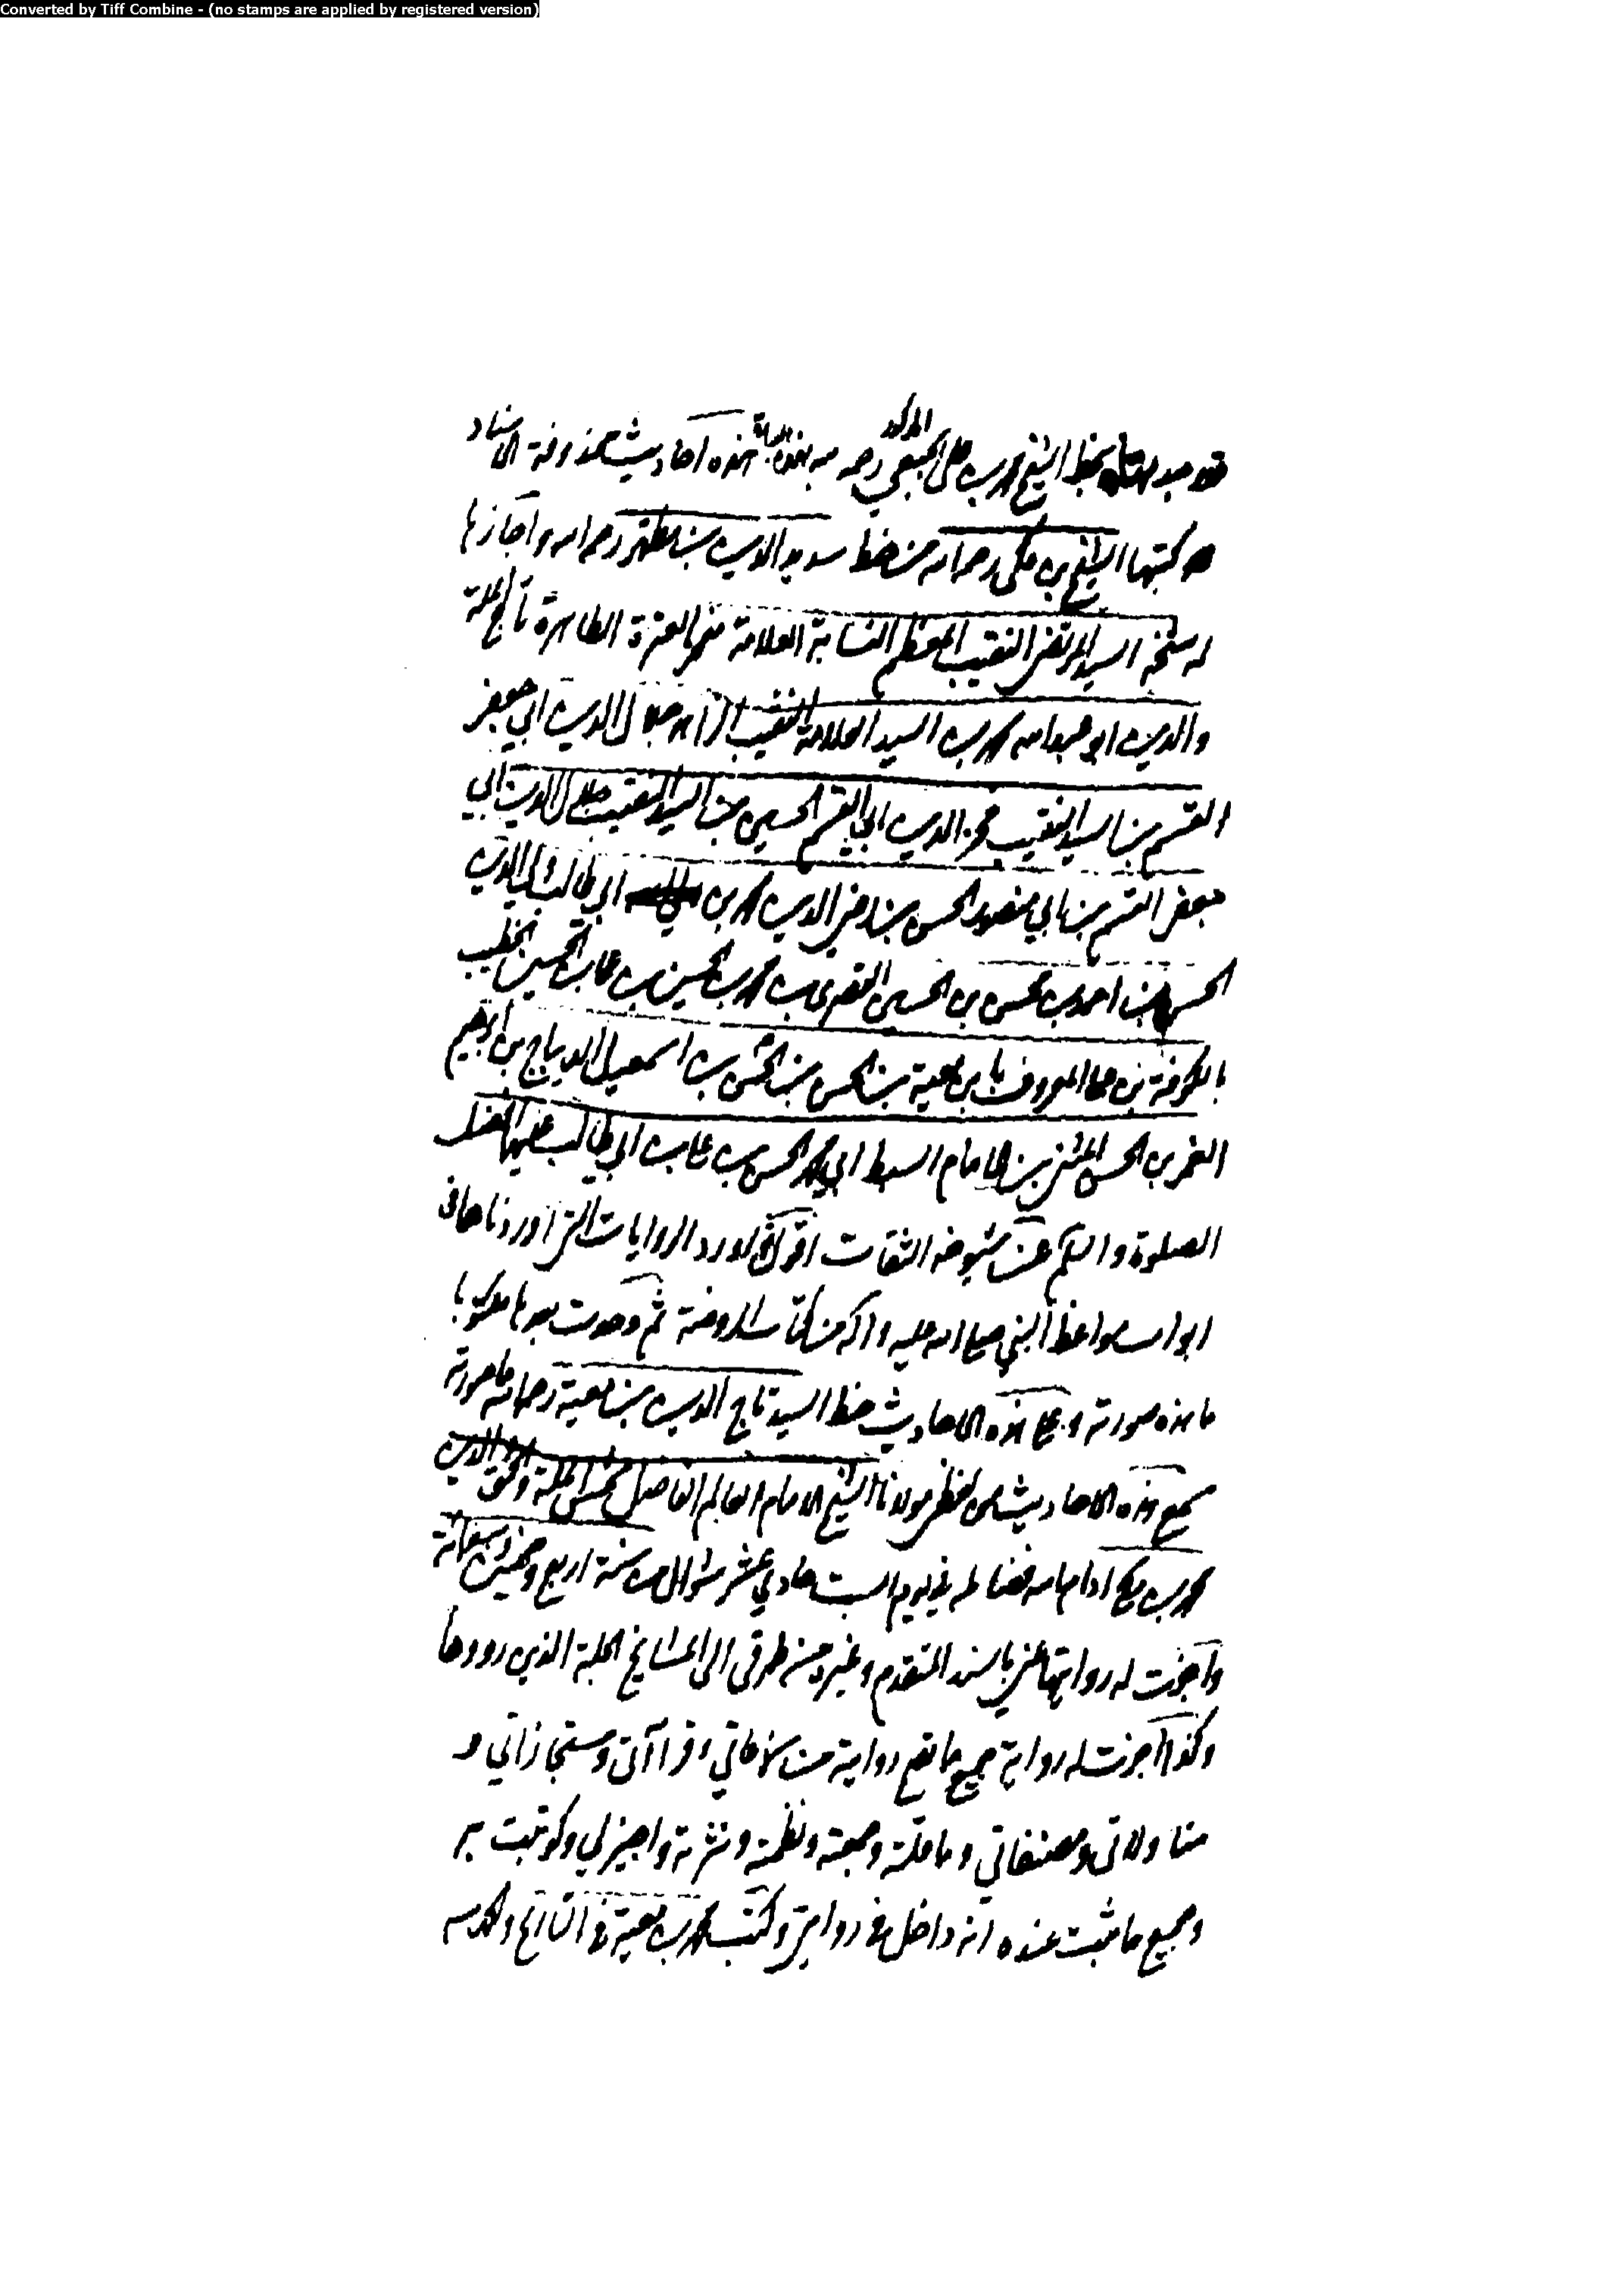 Converted by Tiff Combine - (no stamps are applied by registered version)
بخط الشيخ محمد بن علي الجبعي المذكور رحمه هذه احاديث محذوفة الاسناد
كتبها الشيخ بن مكي رحمه الله من خط سديد الدين بن مطهر رحمه الله واجازها
له شيخه السيد المرتضى النقيب المعظم النسابة العلامة فخر العترة الطاهرة تاج الملة
والدين ابو عبد الله محمد بن السيد العلامة النقيب الزاهد جلال الدين ابي جعفر
القسم بن السيد النقيب فخر الدين ابي القسم الحسين بن السيد النقيب جلال الدين ابي
جعفر القسم بن ابي منصور الحسن بن رضي الدين محمد بن ابي طالب ولي الدين
الحسن بن احمد بن محسن بن الحسين القصري بن محمد بن الحسين بن علي بن الحسين الخطيب
بالكوفة بن علي المعروف بابن معية بن الحسن بن الحسن بن اسمعيل الديباج بن ابرهيم
الغمر بن الحسن المثنى بن الامام السبط ابي محمد الحسن بن علي بن ابي طالب عليهما افضل
الصلوة والسلم عن شيوخه الثقات اقول ثم اورد الروايات التي اوردناها في
ابواب مواعظ النبي صلى الله عليه واله من كتاب الروضة ثم وجدت بعدها مكتوبا
ما هذه صورته وعلى هذه الاحاديث خط السيد تاج الدين بن معية رحمه الله ما صورته
سمع هذه الاحاديث من لفظي مولانا الشيخ الامام العالم الفاضل شمس الملة والحق والدين
محمد بن مكي ادام الله فضائله في يوم السبت حادي عشر شوال من سنة اربع وخمسين وسبعمائة
واجزت له روايتها عني بالسند المتقدم وغيره من طرقي الى المشايخ الجلة الذين رووها
وكذا اجزت له رواية جميع ما تصح روايته من سماعاتي وقراآتي ومستجازاتي و
مناولاتي ومصنفاتي وما قلته وجمعته ونظمته ونثرته واجيز لي وكوتبت به
وجميع ما ثبت عنده انه داخل في روايتي وكتب محمد بن معية في التاريخ والحمد لله